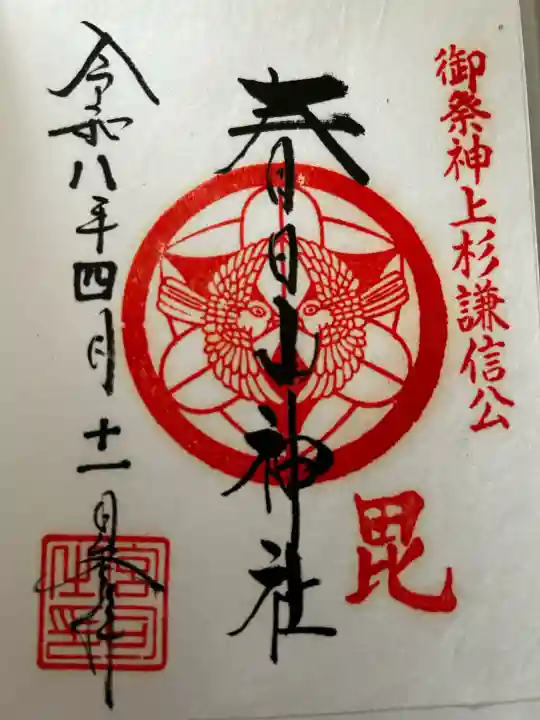 御祭神上杉謙信公
毘
春日山神社
令和八年四月十一日奉拝